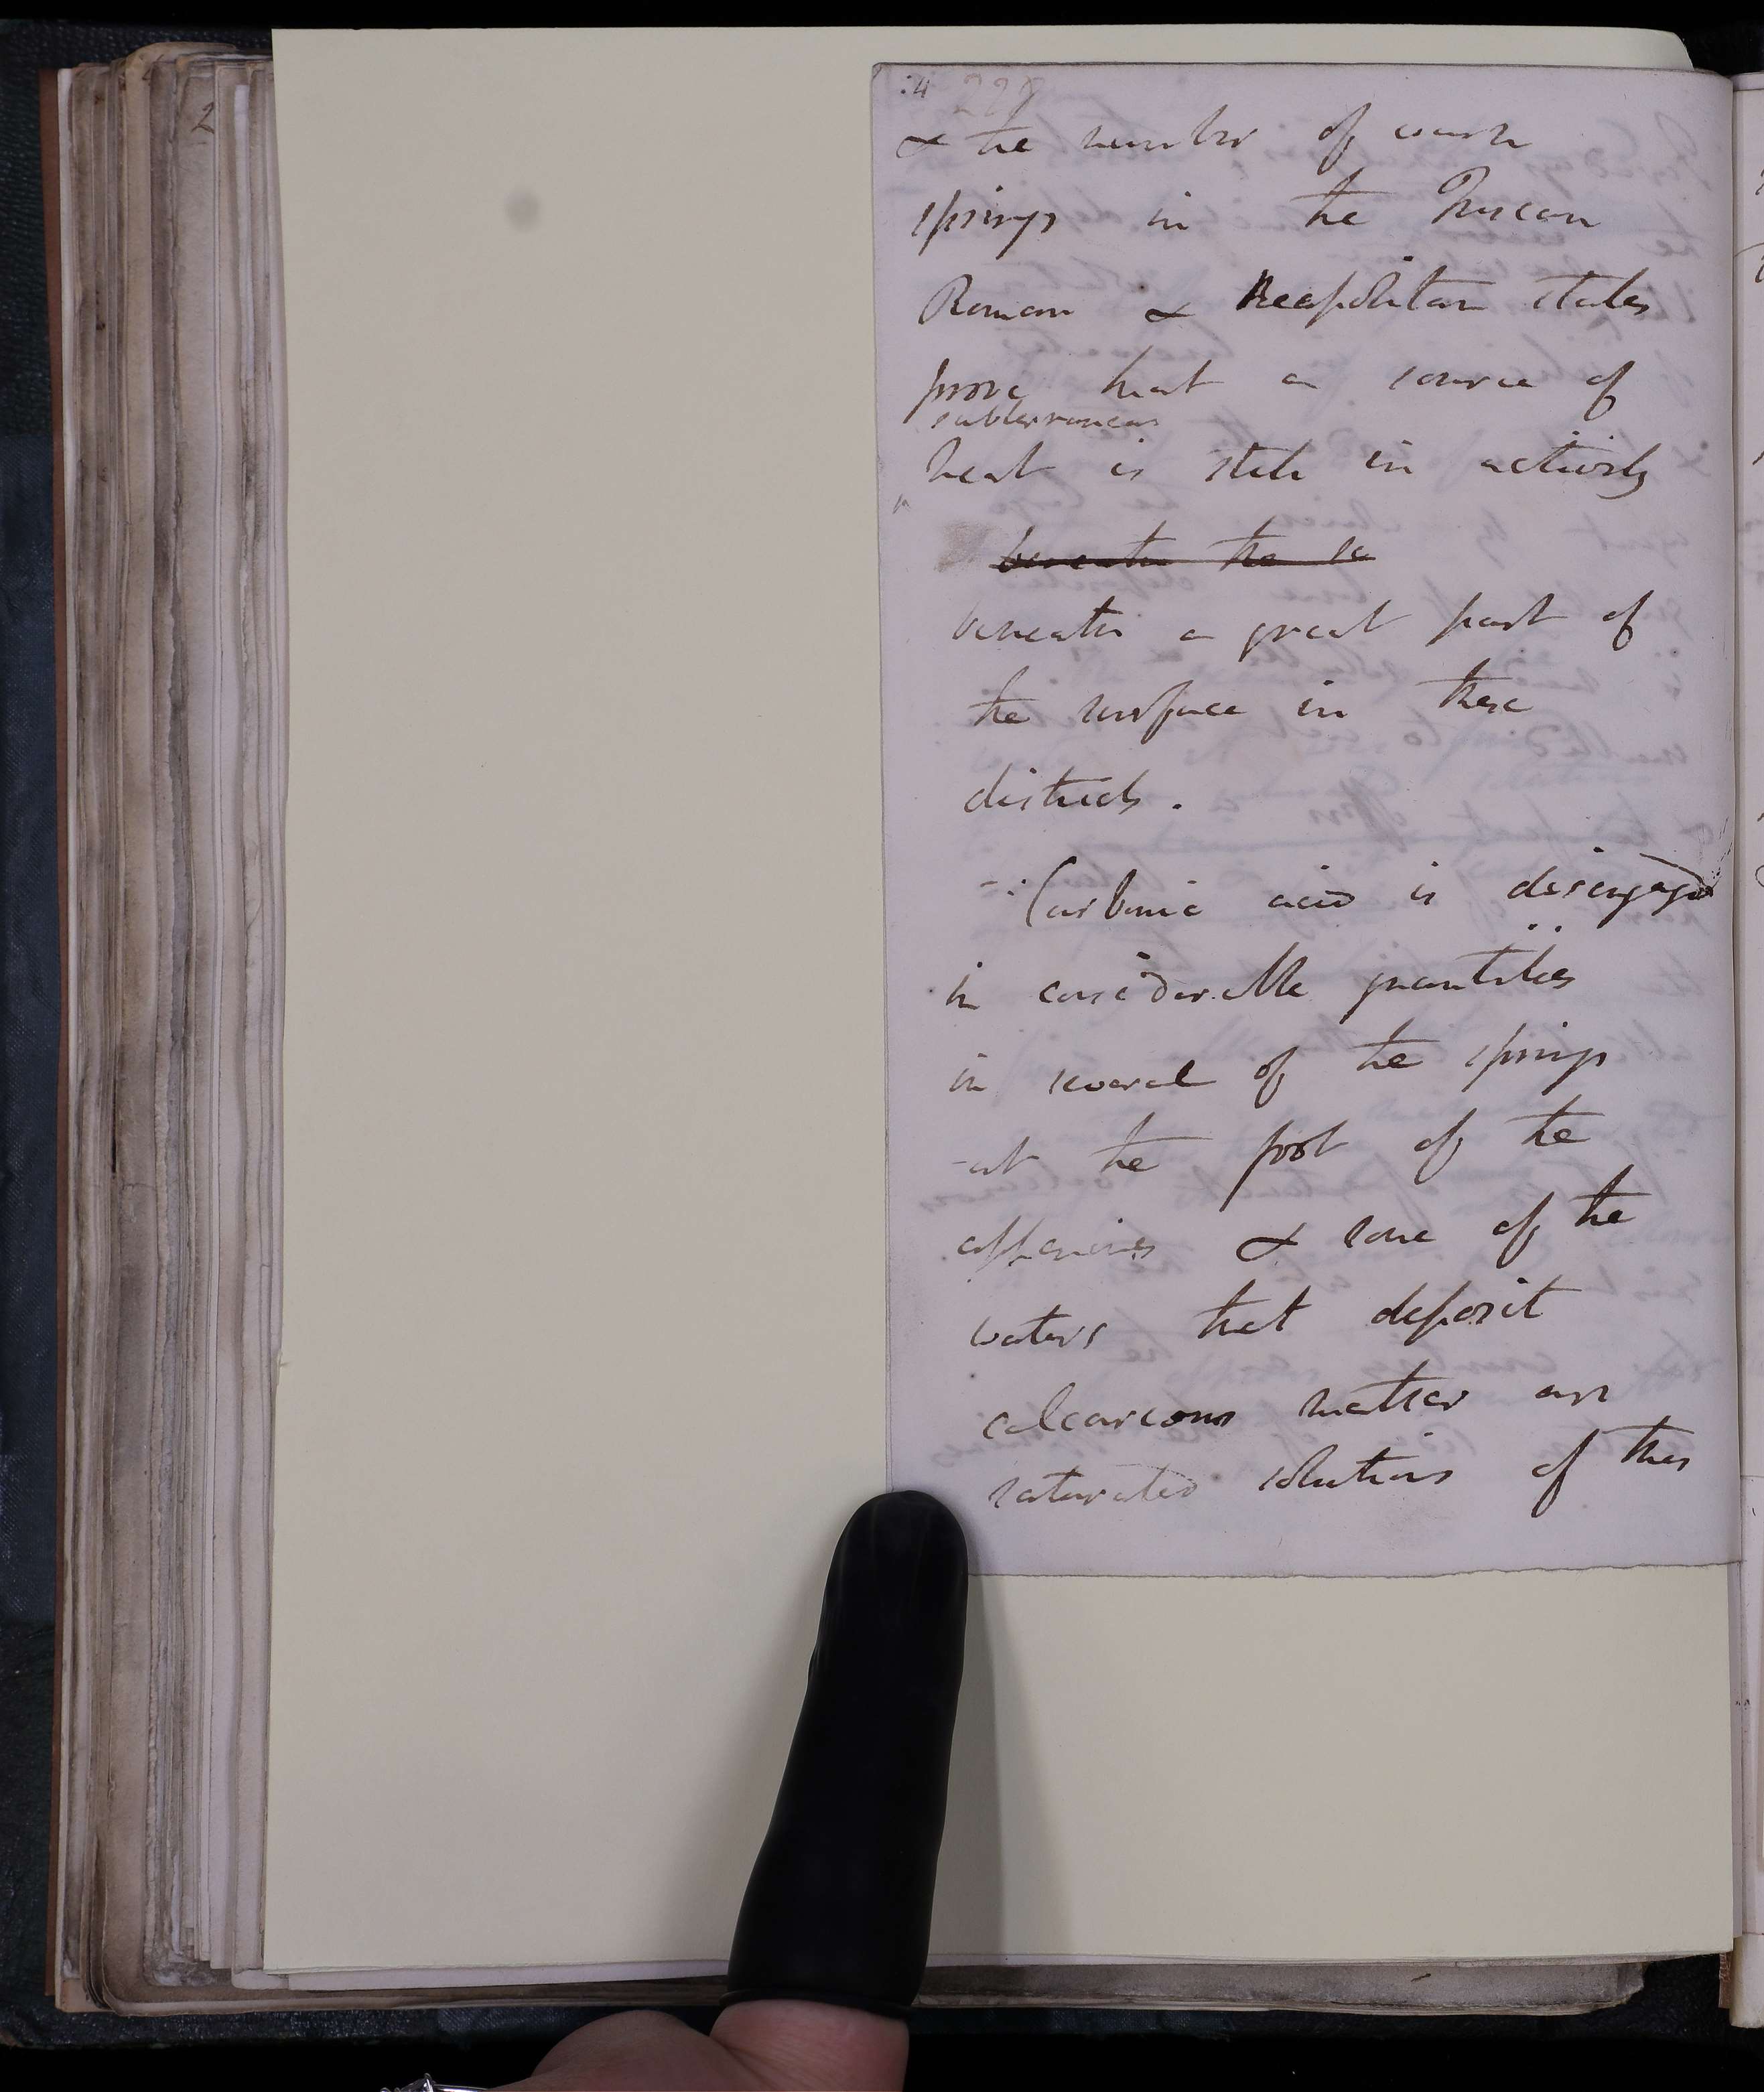 :4
& the number of warm
springs in the Tuscan
Roman & Neapolitan states
prove that a source of
subterranean
heat is still in activity
beneath the
beneath a great part of
the surface in these
districts.
-: Carbonic acid is disengaged
in considerable quantities
in several of the springs
at the foot of the
appenines & some of the
waters that deposit
calcareous matter are
saturated solutions of this
2